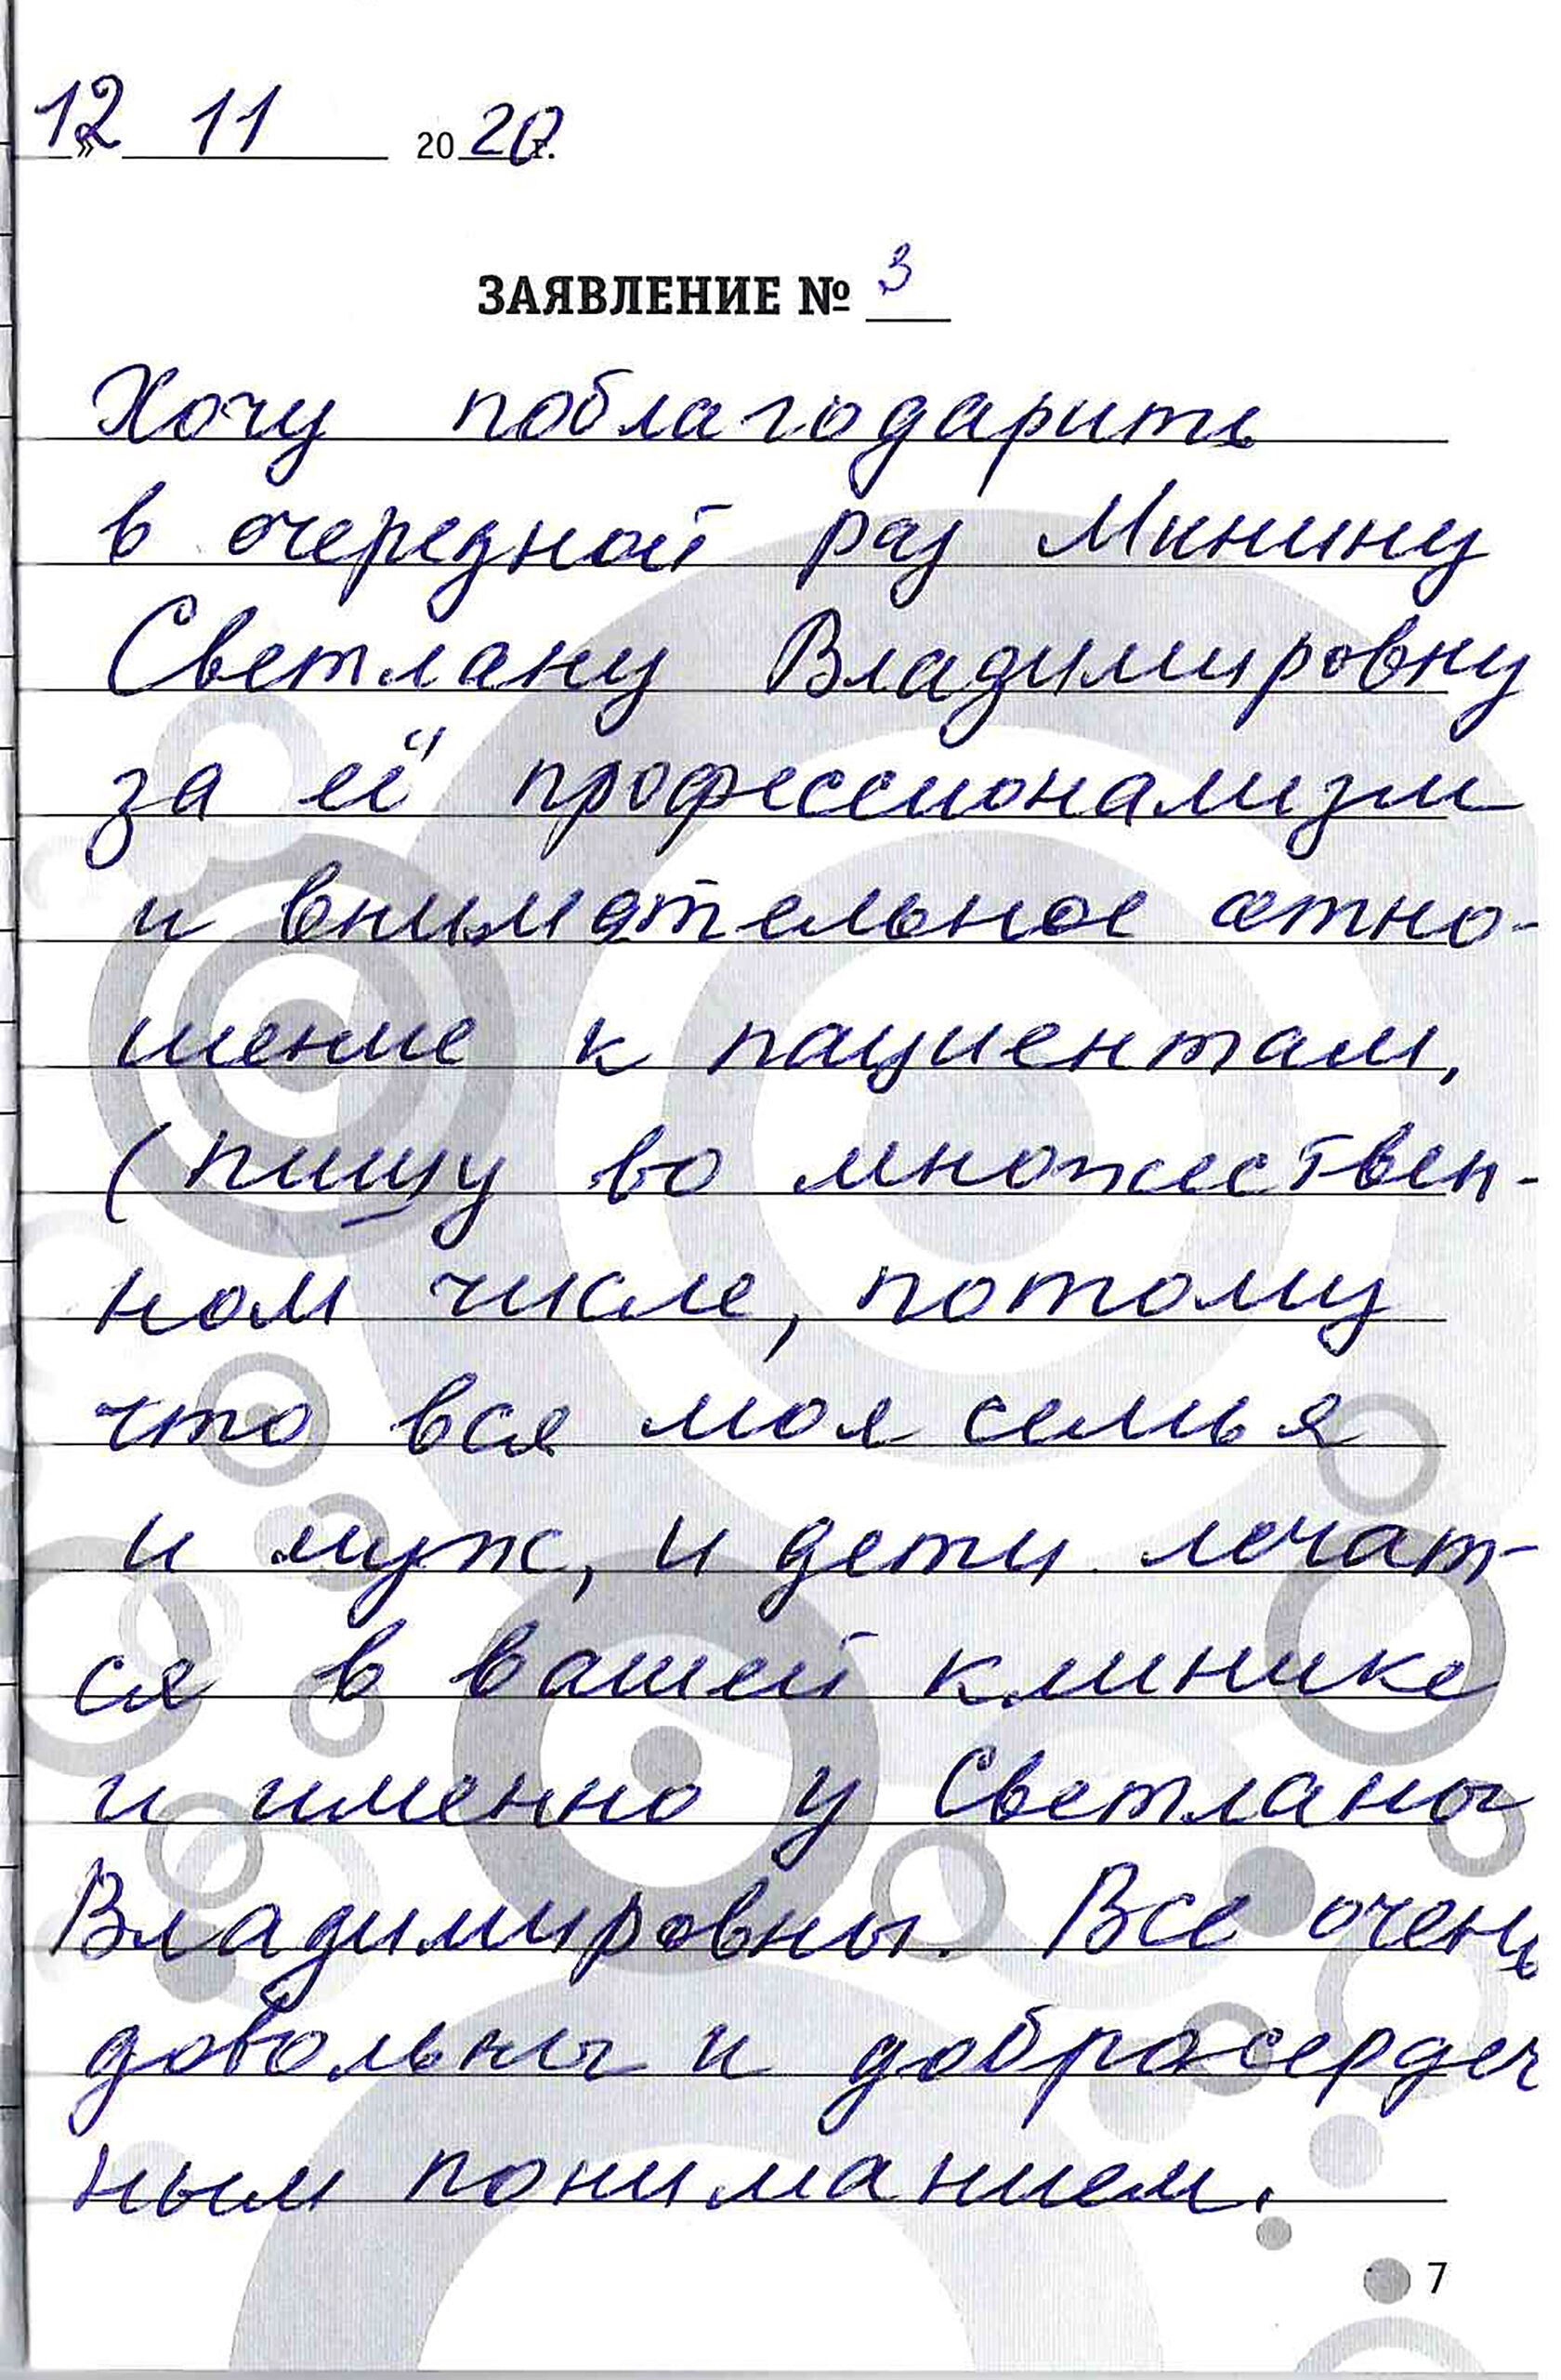 12» 11 2020г.
ЗАЯВЛЕНИЕ № 3
Хочу поблагодарить
в очередной раз Минину
Светлану Владимировну
за её профессионализм
и внимательное отно-
шение к пациентам,
(пишу во множествен-
ном числе, потому
что вся моя семья
и муж, и дети лечат-
ся в вашей клинике
и именно у Светланы
Владимировны. Все очень
довольны и добросердеч
ным пониманием.
7